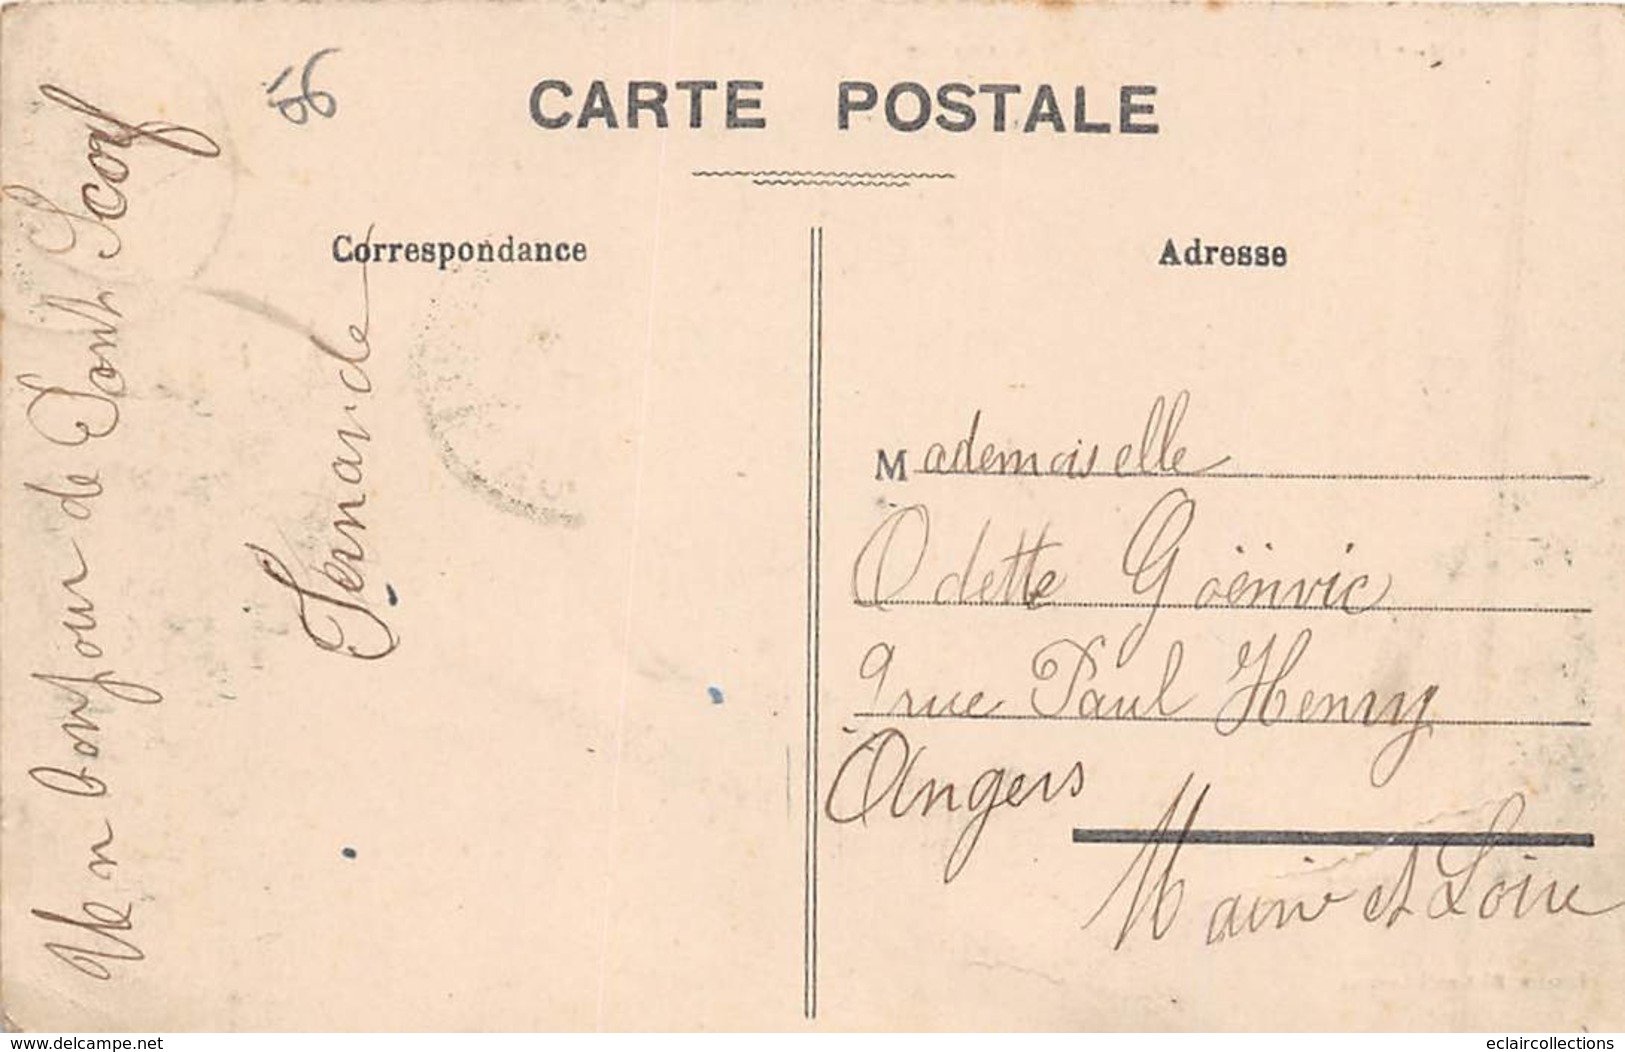 CARTE POSTALE
56
Correspondance
Un bonjour de Pont Scorf
Fernande
Adresse
Mademoiselle
Odette Goënvic
9 rue Paul Henry
Angers
Maine et Loire
www.delcampe.net
eclaircollections